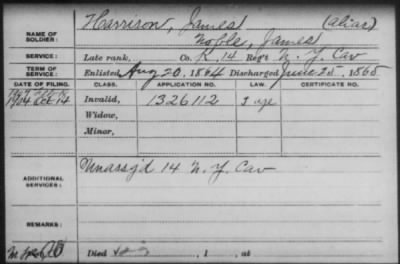 Harrison, James (alias)
NAME OF SOLDIER: Noble, James
SERVICE: Late rank, Co. K. 14 Reg't N. Y. Cav
TERM OF SERVICE: Enlisted Aug 20, 1864 Discharged June 25, 1865
DATE OF FILING. CLASS. APPLICATION NO. LAW. CERTIFICATE NO.
1904 Oct 14 Invalid, 1326112
Widow,
Minor,
ADDITIONAL SERVICES: Unassg'd 14 N. Y. Cav
REMARKS:
Died , 1 , at